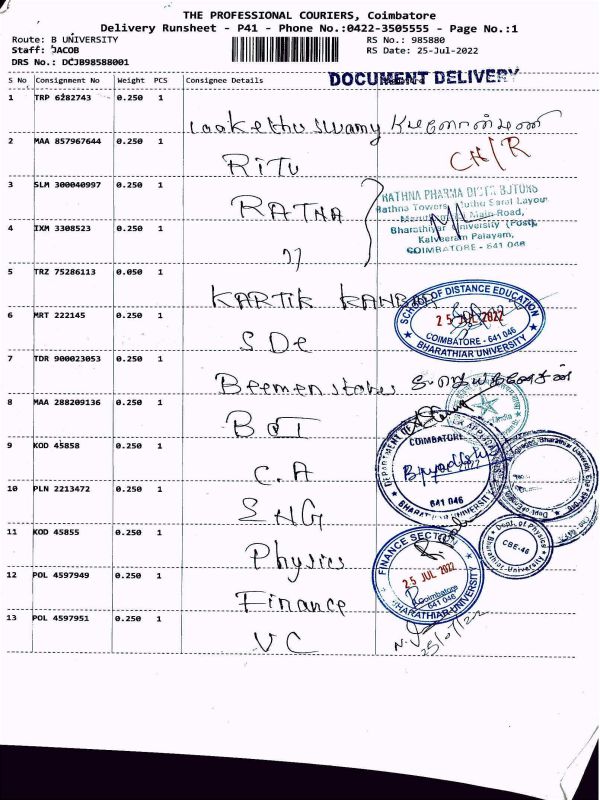 THE PROFESSIONAL COURIERS, Coimbatore
Delivery Runsheet - P41 - Phone No.:0422-3505555 - Page No.:1
Route: B UNIVERSITY RS No.: 985880
Staff: JACOB RS Date: 25-Jul-2022
DRS No.: DCJB98588001
DOCUMENT DELIVERY
S No Consignment No Weight PCS Consignee Details
1 TRP 6282743 0.250 1
2 MAA 857967644 0.250 1 RITU CH/R
3 SLM 300040997 0.250 1 RATNA
RATHNA PHARMA DISTRIBUTORS
Rathna Towers, Muthu Saral Layout
Main Road,
Bharathiyar University (Post),
Kalveeram Palayam,
COIMBATORE - 641 046
4 IXM 3308523 0.250 1 "
5 TRZ 75286113 0.050 1 KARTIK
SCHOOL OF DISTANCE EDUCATION
25 JUL 2022
COIMBATORE - 641 046
BHARATHIAR UNIVERSITY
6 MRT 222145 0.250 1 SDE
7 TDR 900023053 0.250 1
8 MAA 288209136 0.250 1
COIMBATORE
641 046
BHARATHIAR UNIVERSITY
9 KOD 45858 0.250 1 C.A
10 PLN 2213472 0.250 1 ENG
11 KOD 45855 0.250 1 Physics
Dept. of Physics
CBE-46
Bharathiar University
12 POL 4597949 0.250 1 Finance
FINANCE SECTION
25 JUL 2022
Coimbatore
641 046
BHARATHIAR UNIVERSITY
13 POL 4597951 0.250 1 VC
25/07/22